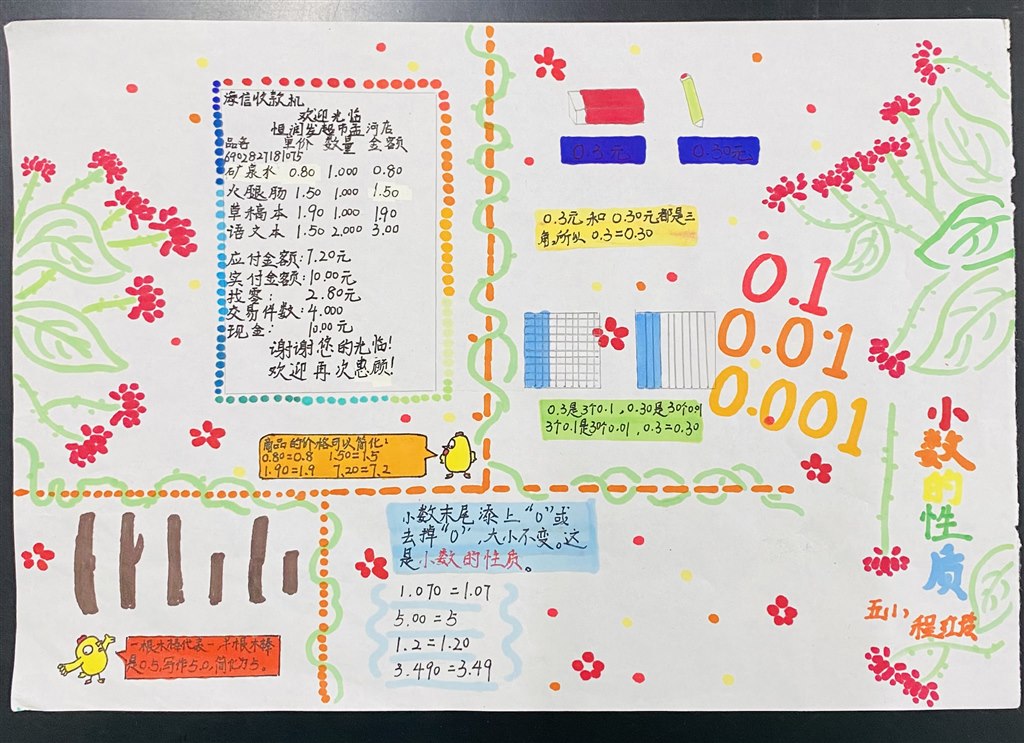 海信收款机
欢迎光临
恒润发超市孟河店
品名 单价 数量 金额
6902827181075
矿泉水 0.80 1.000 0.80
火腿肠 1.50 1.000 1.50
草稿本 1.90 1.000 1.90
语文本 1.50 2.000 3.00
应付金额:7.20元
实付金额:10.00元
找零: 2.80元
交易件数:4.000
现金: 10.00元
谢谢您的光临!
欢迎再次惠顾!
商品的价格可以简化:
0.80=0.8 1.50=1.5
1.90=1.9 7.20=7.2
0.3元
0.30元
0.3元和0.30元都是三
角,所以 0.3=0.30
0.3是3个0.1,0.30是30个0.01
3个0.1是30个0.01,0.3=0.30
0.1
0.01
0.001
小数的性质
五小
一根木棒代表一,半根木棒
是0.5,写作5.0,简化为5。
小数末尾添上“0”或
去掉“0”,大小不变。这
是小数的性质。
1.070=1.07
5.00=5
1.2=1.20
3.490=3.49